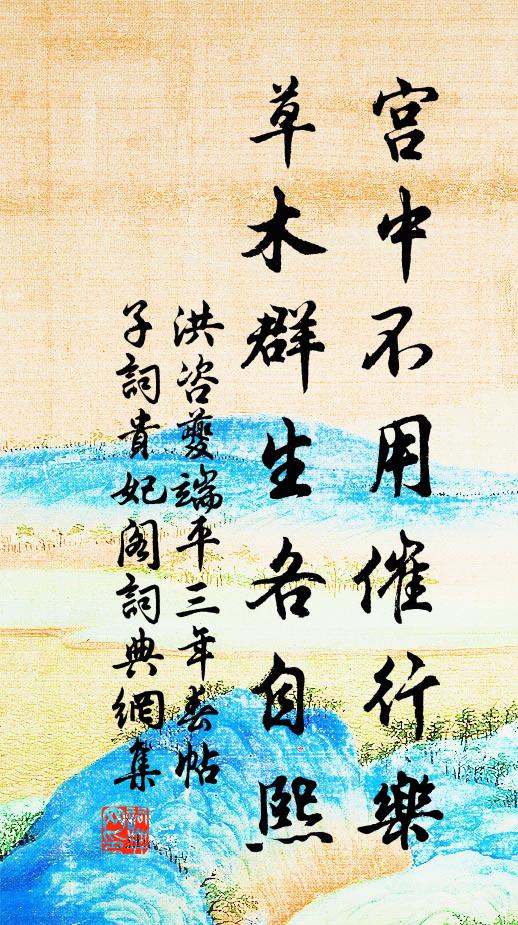 宮中不用催行樂
草木群生各自熙
洪咨夔端平三年春帖
子詞貴妃閣詞典網集